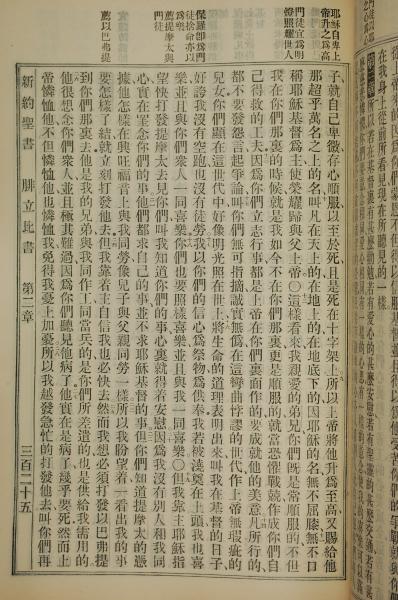 在我身上從前所看見現在所聽見的一樣
耶穌自卑上
帝升之爲高
門徒宜爲明
燈照耀世人
保羅卽爲門
徒捨命亦以
爲樂
薦提摩太與
門徒
薦以巴弗提
子就自己卑微存心順服以至於死且是死在十字架上所以上帝將他升為至高又賜給他
那超乎萬名之上的名叫凡在天上的在地上的在地底下的因耶穌的名無不屈膝無不口
稱耶穌基督為主使榮耀歸與父上帝○這樣看來我親愛的弟兄你們既是常順服的不但
我在你們那裏的時候就是我如今不在你們那裏更是順服的就當恐懼戰兢作成你們自
己得救的工夫因為你們立志行事都是上帝在你們裏面作的要成就他的美意凡所行的
都不要發怨言起爭論叫你們無可指摘誠實無僞在這彎曲悖謬的世代作上帝無瑕疵的
兒女你們顯在這世代中好像明光照在世上將生命的道理表明出來叫我在基督的日子
好誇我沒有空跑也沒有徒勞我以你們的信心為祭物為供奉我若被澆奠在上頭我也喜
樂並且與你們衆人一同喜樂你們也要照樣喜樂並且與我一同喜樂○但我靠主耶穌指
望快打發提摩太去見你們叫我知道你們的事心裏就得着安慰因為我沒有別人和我同
心實在罣念你們的事他們都求自己的事並不求耶穌基督的事但你們知道提摩太的憑
據他怎樣在興旺福音上與我同勞像兒子與父親同勞一樣所以我盼望着一看出我的事
要怎樣了結就立刻打發他去但我靠着主自信我也必快去然而我想必須打發以巴弗提
到你們那裏去他是我的兄弟與我同作工同當兵的是你們所差遣的也是供給我需用的
他很想念你們衆人並且極其難過因為你們聽見他病了他實在是病了幾乎要死然而上
帝憐恤他不但憐恤他也憐恤我免得我憂上加憂所以我越發急忙的打發他去叫你們再
新約聖書 腓立比書 第二章 三百二十五